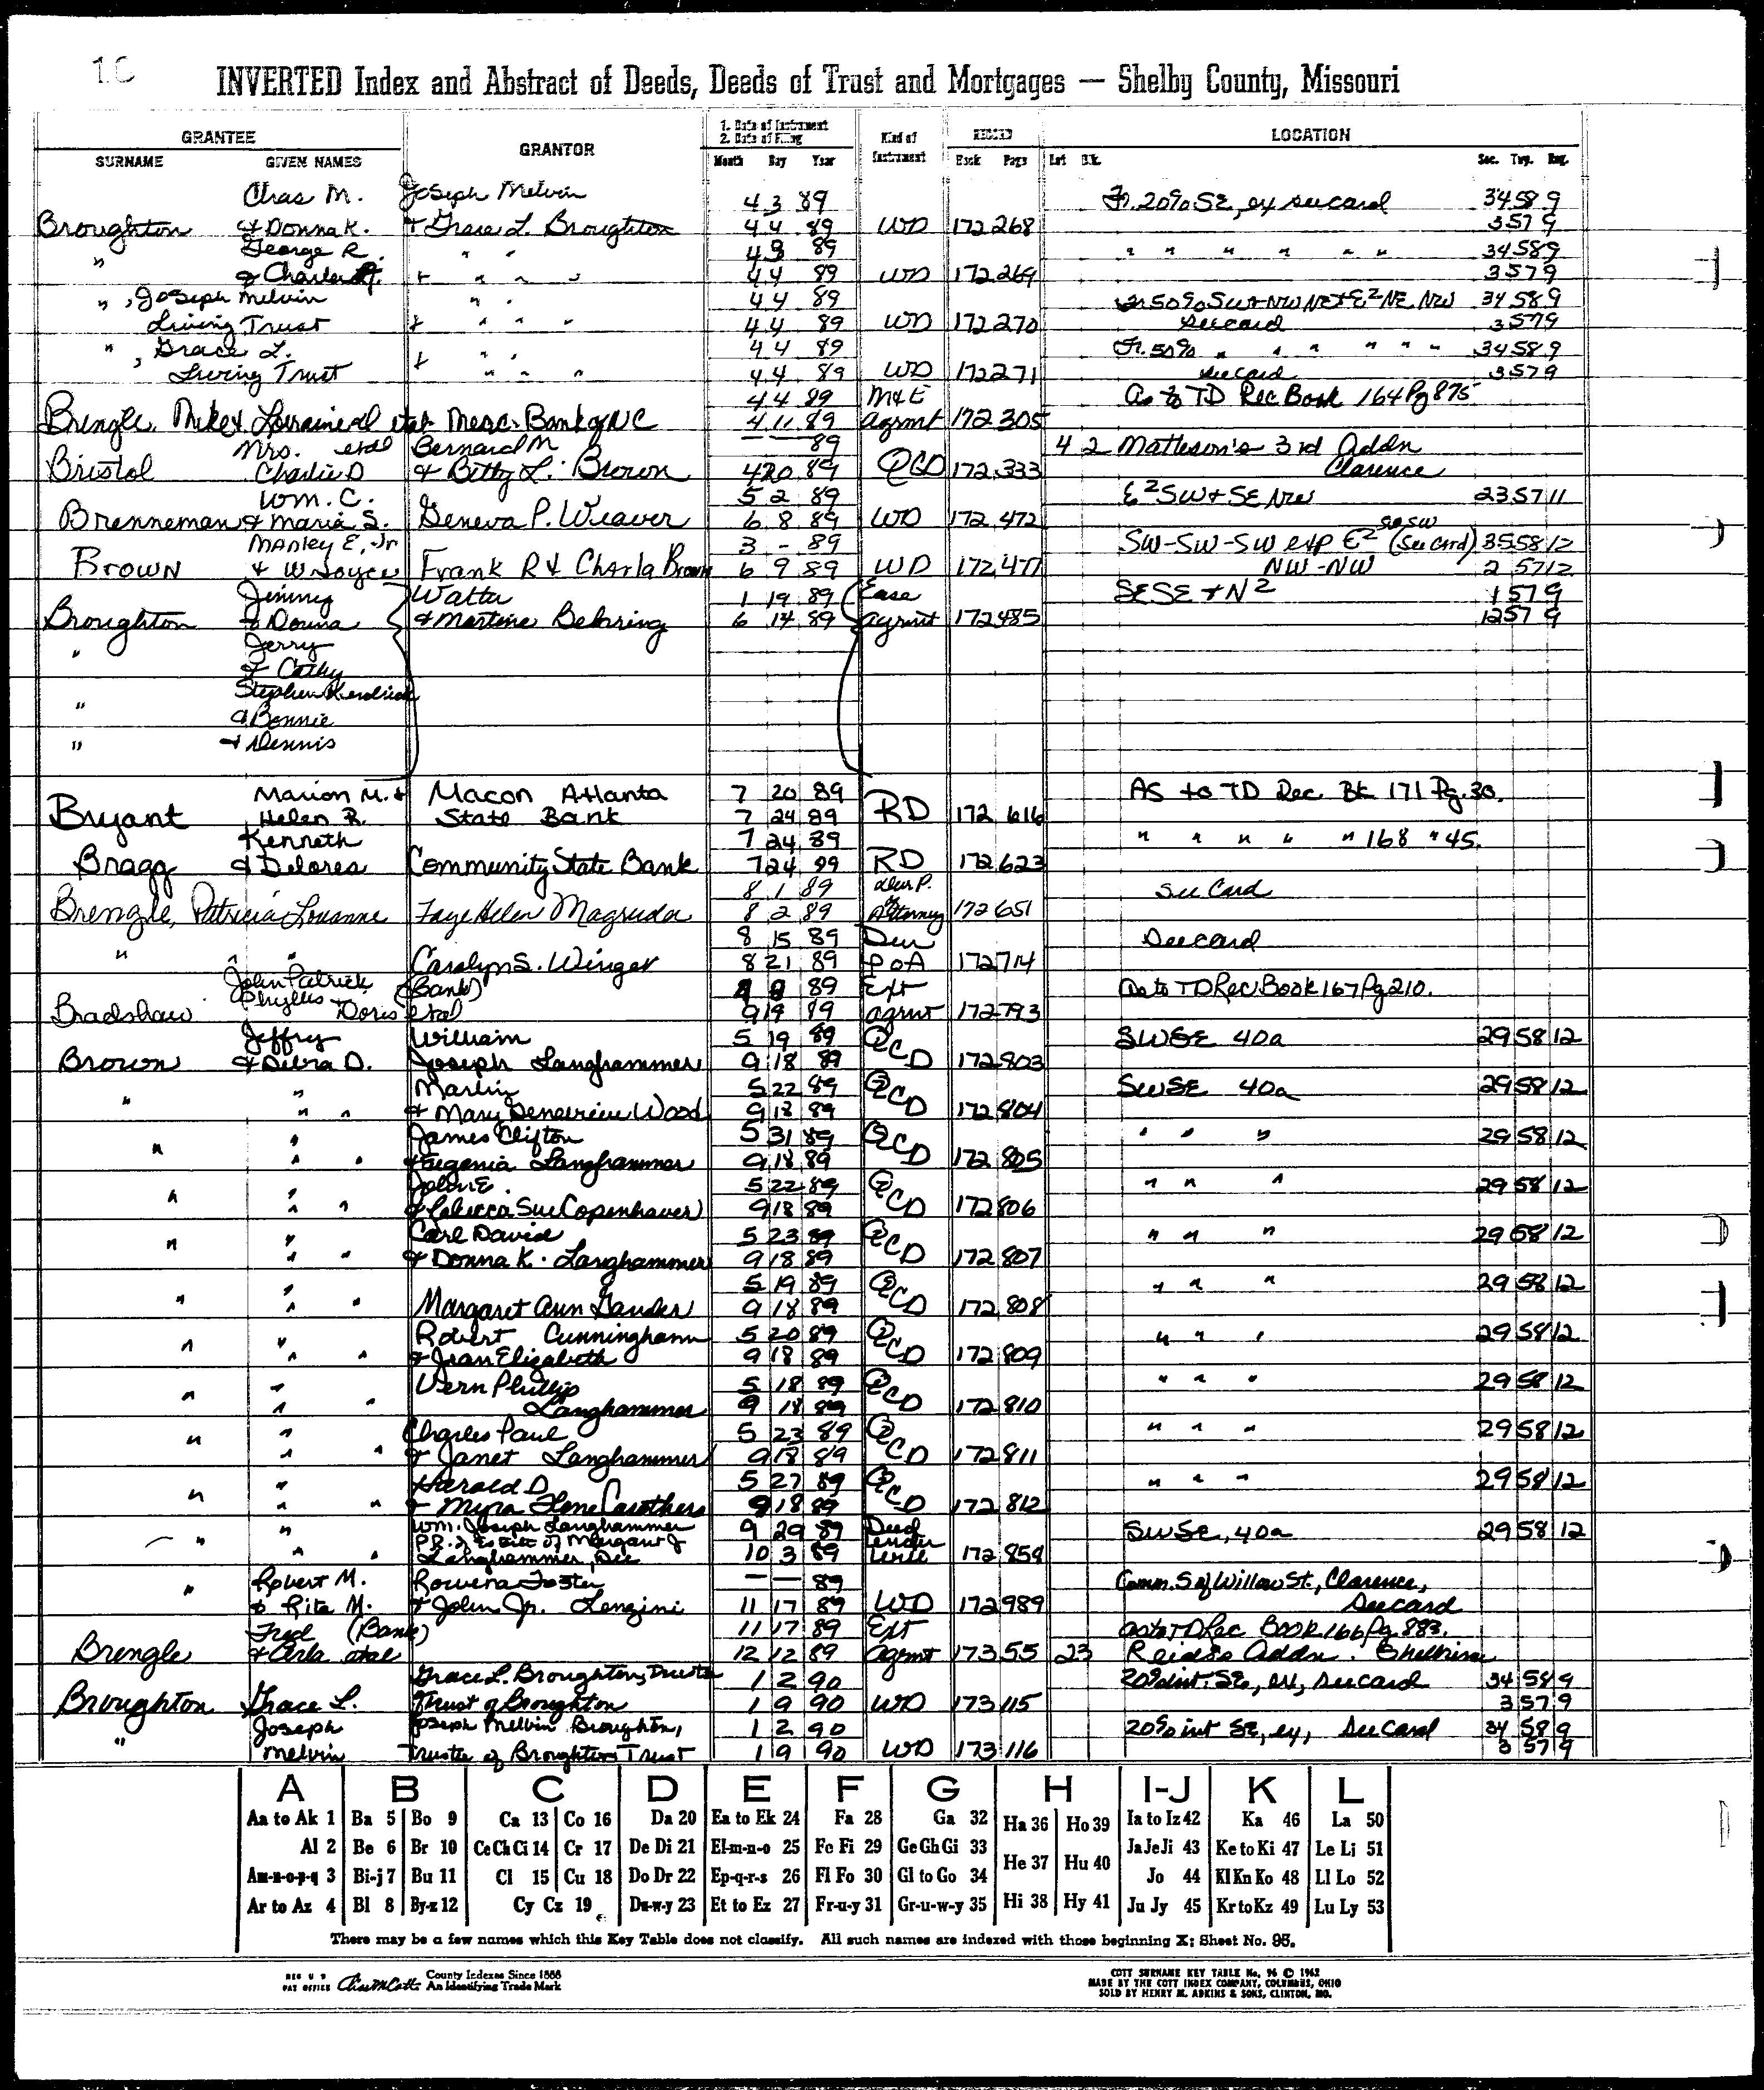 10
INVERTED Index and Abstract of Deeds, Deeds of Trust and Mortgages — Shelby County, Missouri
GRANTEE GRANTOR 1. Date of Instrument 2. Date of Filing Kind of Instrument RECORD LOCATION
SURNAME GIVEN NAMES Month Day Year Book Page Lot Blk. Sec. Twp. Rng.
Chas M. Joseph Melvin 4 3 89 Fr. 20% SE, ex see card 34 58 9
Broughton & Donna K. & Grace L. Broughton 4 4 89 WD 172 268 3 57 9
" George R. " " 4 3 89 " " " " " " 34 58 9
& Charles + " " " 4 4 89 WD 172 269 3 57 9
", Joseph Melvin " " 4 4 89 Fr 50% SW+NW NE+E² NE NW 34 58 9
Living Trust + " " " 4 4 89 WD 172 270 see card 3 57 9
", Grace L. + " " 4 4 89 Fr. 50% " " " " " " 34 58 9
Living Trust " " " 4 4 89 WD 172 271 see card 3 57 9
4 4 89 M&E As to TD Rec Book 164 Pg 875
Brengle, Mike & Lorraine al etal Merc. Bank of NC 4 11 89 agrmt 172 305
Mrs. etal Bernard M — — 89 4 2 Matteson's 3rd Addn
Bristol Charlie D & Betty L. Brown 4 20 89 QCD 172 333 Clarence
Wm. C. 5 2 89 E² SW + SE NW 23 57 11
Brenneman & Maria S. Geneva P. Weaver 6 8 89 WD 172 472
Manley E, Jr 3 - 89 SW-SW-SW exp E² SE SW (see card) 35 58 12
Brown & W Joyce Frank R & Charla Brown 6 9 89 WD 172 477 NW-NW 2 57 12
Jimmy Walter 1 19 89 Ease SESE + N² 1 57 9
Broughton & Donna & Martine Behring 6 14 89 agrmt 172 485 12 57 9
" Jerry
& Cathy
" Stephen Kendrick
& Bonnie
" & Dennis
Marion M. & Macon Atlanta 7 20 89 AS to TD Rec. Bk 171 Pg. 30.
Bryant Helen R. State Bank 7 24 89 RD 172 616
Kenneth 7 24 89 " " " " " 168 " 45.
Bragg & Delores Community State Bank 7 24 89 RD 172 623
8 1 89 dur P. See Card
Brengle, Patricia Louanne Faye Helen Magruder 8 2 89 of Attorney 172 651
8 15 89 Dur See card
" " " Carolyn S. Winger 8 21 89 PoA 172 714
John Patrick (Bank) 8 89 Ext As to TD Rec Book 167 Pg 210.
Bradshaw Phyllis Doris etal 9 14 89 agrmt 172 793
Jeffry William 5 19 89 QCD SWSE 40a 29 58 12
Brown & Debra D. Joseph Langhammer 9 18 89 172 803
" " Marlin 5 22 89 QCD SWSE 40a 29 58 12
" " & Mary Genevieve Wood 9 18 89 172 804
" " James Clifton 5 31 89 QCD " " " 29 58 12
" " & Eugenia Langhammer 9 18 89 172 805
" " John E. 5 22 89 QCD " " " 29 58 12
" " & Rebecca Sue Copenhaver 9 18 89 172 806
" " Carl David 5 23 89 QCD " " " 29 58 12
" " & Donna K. Langhammer 9 18 89 172 807
" " 5 19 89 QCD " " " 29 58 12
" " Margaret Ann Gander 9 18 89 172 808
" " Robert Cunningham 5 20 89 QCD " " " 29 58 12
" " & Jean Elizabeth 9 18 89 172 809
" " Vern Phillip 5 18 89 QCD " " " 29 58 12
" " Langhammer 9 18 89 172 810
" " Charles Paul 5 23 89 QCD " " " 29 58 12
" " & Janet Langhammer 9 18 89 172 811
" " Harold D 5 27 89 QCD " " " 29 58 12
" " & Myra Ilene Carothers 9 18 89 172 812
" " Wm. Joseph Langhammer 9 29 89 Deed SWSE, 40a 29 58 12
P.R. of Estate of Margaret J Under
" " Langhammer, Dec 10 3 89 172 854
" Robert M. Rowena Foster — — 89 Comm. S of Willow St., Clarence,
& Rita M. & John Jr. Lenzini 11 17 89 WD 172 989 see card
Fred (Bank) 11 17 89 Ext as to TD Rec Book 166 Pg. 883.
Brengle & Arla etal 12 12 89 agrmt 173 55 23 Reid's Addn. Shelbina
Grace L. Broughton, Trustee 1 2 90 20% int. SE, ex, see card 34 58 9
Broughton Grace L. Trust of Broughton 1 9 90 WD 173 115 3 57 9
" Joseph Joseph Melvin Broughton, 1 2 90 20% int SE, ex, See Card 34 58 9
Melvin Trustee of Broughton Trust 1 9 90 WD 173 116 3 57 9
A B C D E F G H I-J K L
Aa to Ak 1 Ba 5 Bo 9 Ca 13 Co 16 Da 20 Ea to Ek 24 Fa 28 Ga 32 Ha 36 Ho 39 Ia to Iz 42 Ka 46 La 50
Al 2 Be 6 Br 10 Ce Ch Ci 14 Cr 17 De Di 21 El-m-n-o 25 Fe Fi 29 Ge Gh Gi 33 He 37 Hu 40 Ja Je Ji 43 Ke to Ki 47 Le Li 51
Am-n-o-p-q 3 Bi-j 7 Bu 11 Cl 15 Cu 18 Do Dr 22 Ep-q-r-s 26 Fl Fo 30 Gl to Go 34 Jo 44 Kl Kn Ko 48 Ll Lo 52
Ar to Az 4 Bl 8 By-z 12 Cy Cz 19 Du-w-y 23 Et to Ez 27 Fr-u-y 31 Gr-u-w-y 35 Hi 38 Hy 41 Ju Jy 45 Kr to Kz 49 Lu Ly 53
There may be a few names which this Key Table does not classify. All such names are indexed with those beginning X; Sheet No. 95.
REG U S PAT OFFICE County Indexes Since 1888
An Identifying Trade Mark
COTT SURNAME KEY TABLE No. 96 © 1962
MADE BY THE COTT INDEX COMPANY, COLUMBUS, OHIO
SOLD BY HENRY M. ADKINS & SONS, CLINTON, MO.